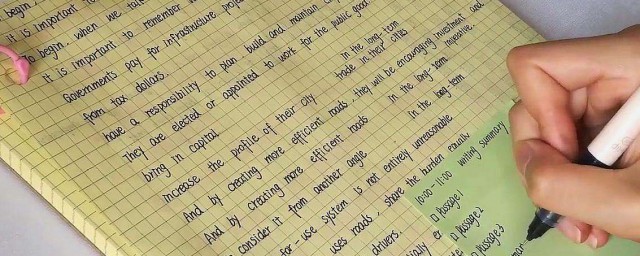 begin,
it is important to
To begin, when we talk
it is important to remember
Governments pay for infrastructure
from tax dollars.
have a responsibility to plan, build and maintain
They are elected or appointed to work for the public good
bring in capital
increase the profile of their city
And by creating more efficient roads, they will be encouraging investment and
And by creating more efficient roads
consider it from another angle
for-use system is not entirely unreasonable
uses roads, share the burden equally
drivers.
in the long-term
trade in their cities
imperative.
in the long-term
in the long-term
writing summary
10:00-11:00
Passage 1
Passage 2
Passage 3